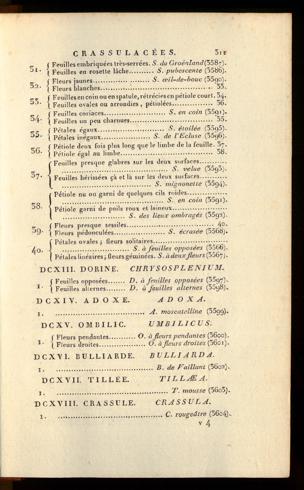 CRASSULACÉES. 311
31. { Feuilles embriquées très-serrées. S. du Groënland (3587).
Feuilles en rosette lâche........ S. pubescente (3586).
32. { Fleurs jaunes........ S. œil-de-bouc (3590).
Fleurs blanches........ 33.
33. { Feuilles en coin ou en spatule, rétrécies en pétiole court. 34.
Feuilles ovales ou arrondies, pétiolées........ 36.
34. { Feuilles coriaces........ S. en coin (3591).
Feuilles un peu charnues........ 35.
35. { Pétales égaux........ S. étoilée (3595).
Pétales inégaux........ S. de l'Ecluse (3596).
36. { Pétiole deux fois plus long que le limbe de la feuille. 37.
Pétiole égal au limbe........ 38.
37. { Feuilles presque glabres sur les deux surfaces........
........ S. velue (3593).
Feuilles hérissées çà et là sur les deux surfaces........
........ S. mignonette (3594).
38. { Pétiole nu ou garni de quelques cils roides........
........ S. en coin (3591).
Pétiole garni de poils roux et laineux........
........ S. des lieux ombragés (3592).
39. { Fleurs presque sessiles........ 40.
Fleurs pédonculées........ S. écrasée (3568).
40. { Pétales ovales; fleurs solitaires........
........ S. à feuilles opposées (3566).
Pétales linéaires; fleurs géminées. S. à deux fleurs (3567).
DCXIII. DORINE. CHRYSOSPLENIUM.
1. { Feuilles opposées........ D. à feuilles opposées (3597).
Feuilles alternes........ D. à feuilles alternes (3598).
DCXIV. ADOXE. ADOXA.
1. ........ A. moscatelline (3599).
DCXV. OMBILIC. UMBILICUS.
1. { Fleurs pendantes........ O. à fleurs pendantes (3600).
Fleurs droites........ O. à fleurs droites (3601).
DCXVI. BULLIARDE. BULLIARDA.
1. ........ B. de Vaillant (3602).
DCXVII. TILLÉE. TILLÆA.
1. ........ T. mousse (3603).
DCXVIII. CRASSULE. CRASSULA.
1. ........ C. rougeâtre (3604).
v 4